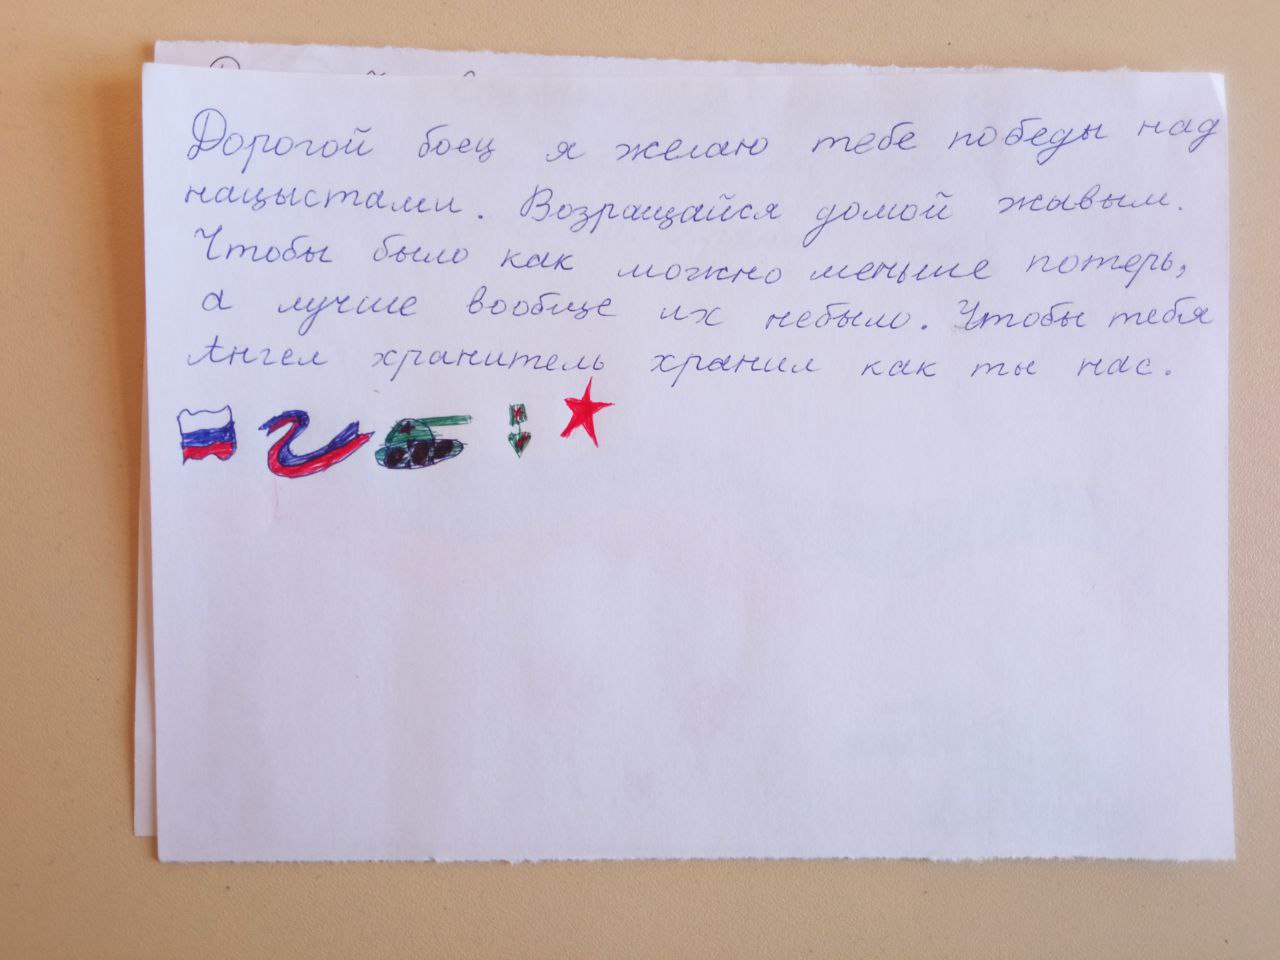 Дорогой боец я желаю тебе победы над
нацыстами. Возращайся домой живым.
Чтобы было как можно меньше потерь,
а лучше вообще их небыло. Чтобы тебя
Ангел хранитель хранил как ты нас.